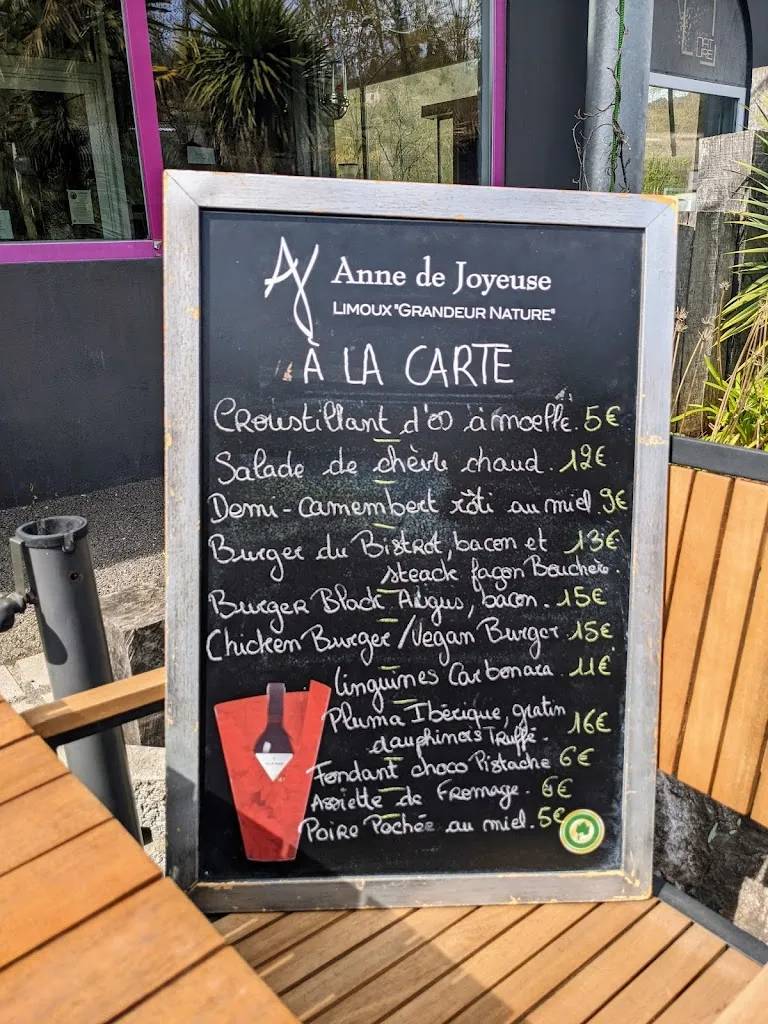 Anne de Joyeuse
LIMOUX "GRANDEUR NATURE"
À LA CARTE
Croustillant d'os à moelle. 5€
Salade de chèvre chaud. 12€
Demi-Camembert rôti au miel 9€
Burger du Bistrot, bacon et 13€
steack façon Bouchère.
Burger Black Angus, bacon. 15€
Chicken Burger/Vegan Burger 15€
linguines Carbonara 11€
Pluma Ibérique, gratin 16€
dauphinois Truffé.
Fondant choco Pistache 6€
Assiette de Fromage. 6€
Poire Pochée au miel. 5€